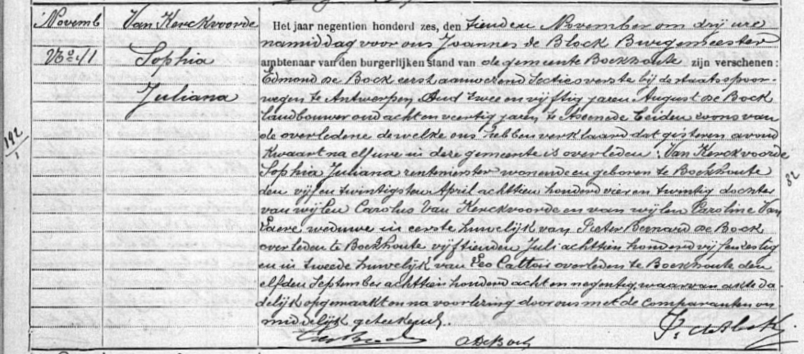 Novemb
No 41
Van Kerckvoorde
Sophia
Juliana
142
1
82
Het jaar negentien honderd zes, den tienden November om drij ure
namiddag voor ons Joannes de Block Burgemeester
ambtenaar van den burgerlijken stand van de gemeente Bockhoute zijn verschenen:
Edmond De Bock eerst aanwezend sectieoverste bij de staatsspoor-
wegen te Antwerpen oud twee en vijftig jaren, August De Bock
landbouwer oud acht en veertig jaren, te Assenede beiden zoons van
de overledene dewelke ons hebben verklaard dat gisteren avond
kwaart na elf ure in deze gemeente is overleden: Van Kerckvoorde
Sophia Juliana rentenierster wonende en geboren te Bockhoute
den vijf en twintigsten April achttien honderd vier en twintig dochter
van wijlen Carolus Van Kerckvoorde en van wijlen Caroline Van
Laere weduwe in eerste huwelijk van Pieter Bernard De Bock
overleden te Bockhoute vijftienden Juli achttien honderd vijf en zestig
en in tweede huwelijk van Leo Cattoir overleden te Bockhoute den
elfden September achttien honderd acht en negentig, waarvan akte da-
delijk opgemaakt en na voorlezing door ons met de comparanten on-
middelijk geteekend.
De Bock